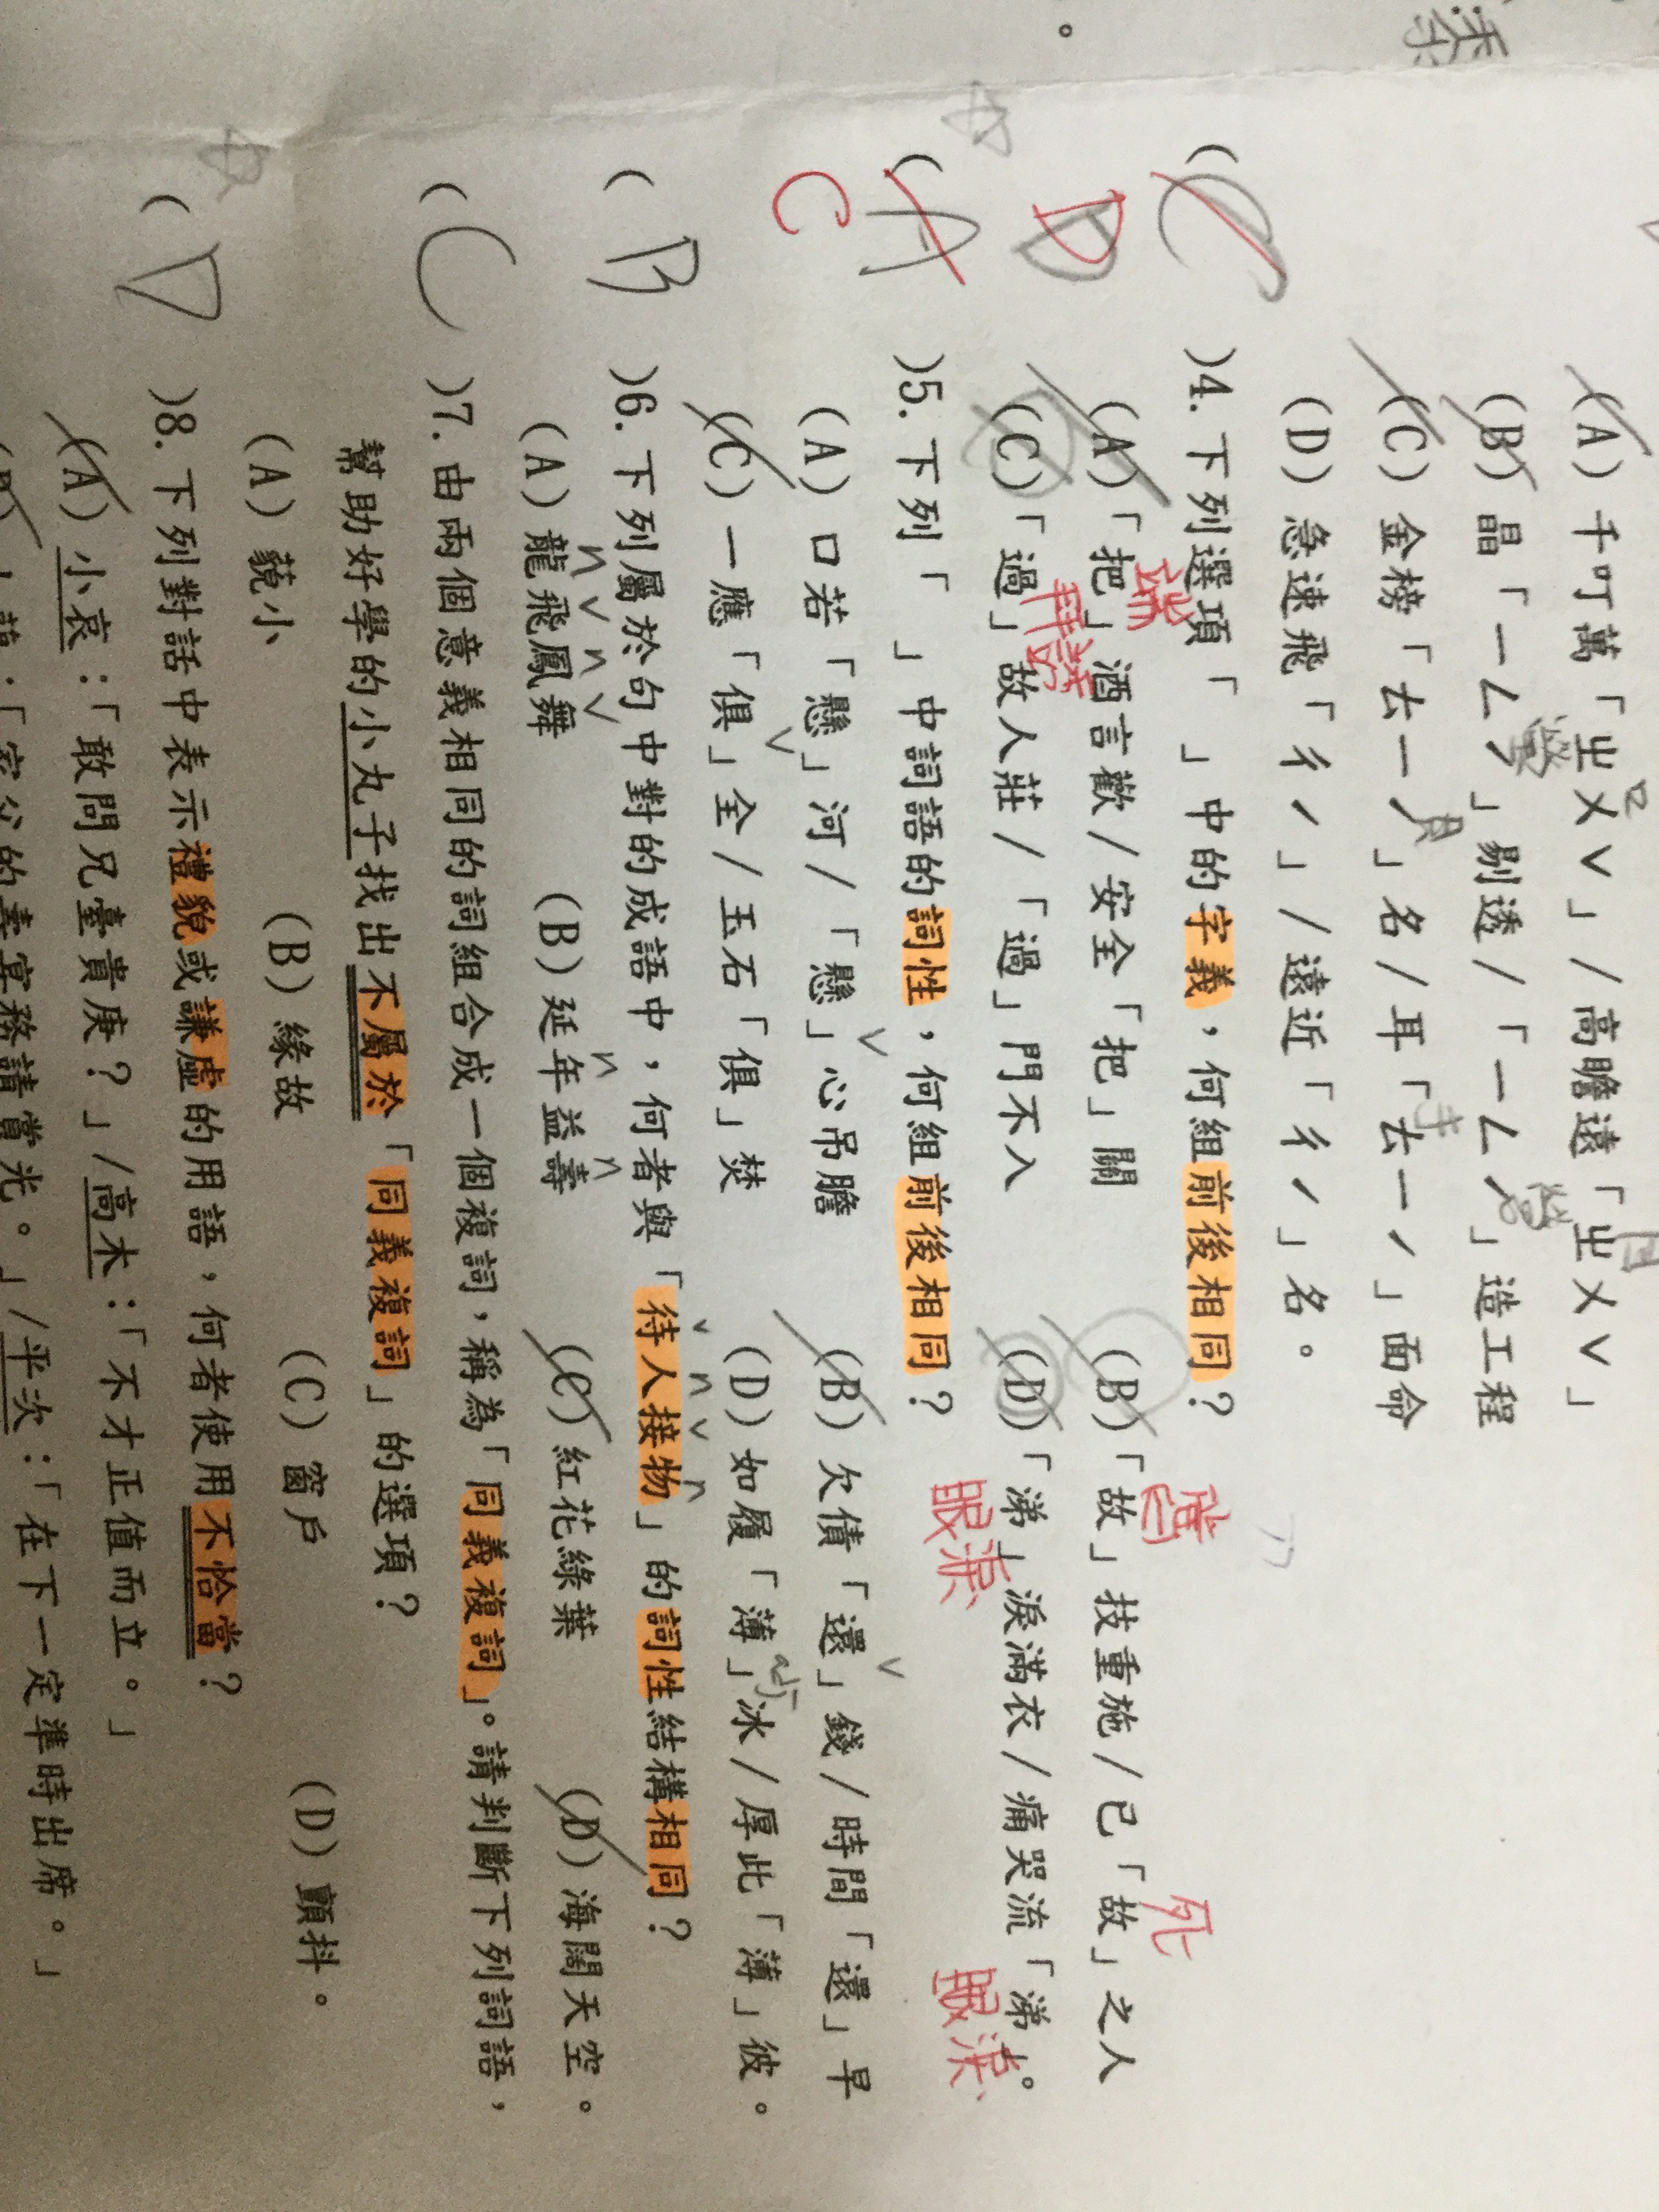 (A)千叮萬「ㄓㄨˇ」/高瞻遠「ㄓㄨˇ」
(B)晶「ㄧㄥˊ」剔透/「ㄧㄥˊ」造工程
(C)金榜「ㄊㄧˊ」名/耳「ㄊㄧˊ」面命
(D)急速飛「ㄔˊ」/遠近「ㄔˊ」名。
(C)4.下列選項「 」中的字義，何組前後相同？
D
(A)「把」酒言歡/安全「把」關 (B)「故」技重施/已「故」之人
舊 死
拜訪
(C)「過」故人莊/「過」門不入 (D)「涕」淚滿衣/痛哭流「涕」。
眼淚 眼淚
(A)5.下列「 」中詞語的詞性，何組前後相同？
C
(A)口若「懸」河/「懸」心吊膽 (B)欠債「還」錢/時間「還」早
v v v
(C)一應「俱」全/玉石「俱」焚 (D)如履「薄」冰/厚此「薄」彼。
(B)6.下列屬於句中對的成語中，何者與「待人接物」的詞性結構相同？
v n v n
(A)龍飛鳳舞 (B)延年益壽 (C)紅花綠葉 (D)海闊天空。
n v n v n n
(C)7.由兩個意義相同的詞組合成一個複詞，稱為「同義複詞」。請判斷下列詞語，
幫助好學的小丸子找出不屬於「同義複詞」的選項？
(A)藐小 (B)緣故 (C)窗戶 (D)顫抖。
(D)8.下列對話中表示禮貌或謙虛的用語，何者使用不恰當？
(A)小哀：「敢問兄臺貴庚？」/高木：「不才正值而立。」
/平次：「在下一定準時出席。」